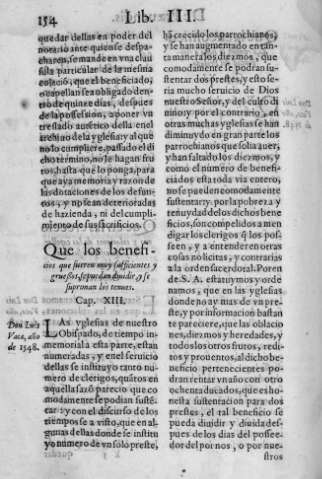 154 Lib. III.
que dar dellas en poder del
notario ante quien se despa-
charen, se mande en vna clau
sula particular de la mesma
colació, que el beneficiado,
o capellan sea obligado den-
tro de quinze dias, despues
de la possession, a poner vn
treslado autétíco della en el
archiuo de la yglesia: y al que
no lo cumpliere, passado el di
cho término, no le hagan fru
tos, hasta que lo ponga, para
que aya memoria y razon de
las dotaciones de los defun-
tos, y no sean deterioradas
de hazienda, ni del cumpli-
miento de sus sacrificios.
Que los benefi-
cios que fueren muy suficientes y
gruessos, se puedan diuidir, y se
supriman los tenues.
Cap. XIII.
Don Luis
Vaca, año
de 1548.
LAs yglesias de nuestro
Obispado, de tiempo in-
memorial a esta parte, estan
numeradas, y en el seruicio
dellas se instituyo tanto nu-
mero de clerigos, quátos en
aquella sazó parecio que co
modamente se podian susté-
tar: y con el discurso de los
tiempos se a visto, que en al-
gunas dellas donde se institu
yo número de vn solo preste,
há crecido los parrochianos,
y se han augmentado en tán-
ta manera los diezmos, que
comodamente se podran sus-
tentar dos prestes, y esto se-
ria mucho seruicio de Dios
nuestro Señor, y del culto di
uino: y por el contrario, en
otras muchas yglesias se han
diminuydo en gran parte los
parrochianos que solia auer,
y han faltado los diezmos, y
como el numero de benefi-
ciados esta toda via entero,
no se pueden comodamente
sustentar: y por la pobreza y
tenuydad de los dichos bene
ficios, son compelidos a men
digar los clerigos q̃ los pos-
seen, y a entender en otras
cosas no licitas, y contrarias
a la orden sacerdotal. Por en
de S. A. estatuymos y orde
namos, que en las yglesias
donde no ay mas de vn pres-
te, y por informacion bastan
te pareciere, que las oblacio
nes, diezmos y heredades, y
todos los otros frutos, redi-
tos y prouentos, al dicho be
neficio pertenecientes po-
dran rentar vn año con otro
ochenta ducados, que es ho-
nesta sustentacion para dos
prestes, el tal beneficio se
pueda diuidir y diuida des-
pues de los dias del possee-
dor del por nos, o por nue-
stros